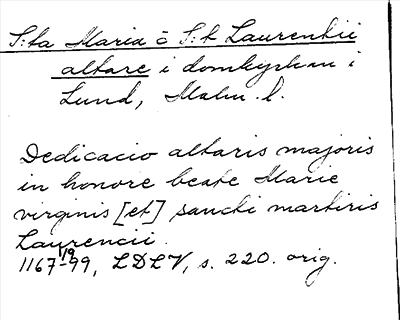 S:ta Maria o S:t Laurentii
altare i domkyrkan i
Lund, Malm. l.
Dedicacio altaris majoris
in honore beate Marie
virginis [et] sancti martiris
Laurencii.
1167-19/9 99, LDLV, s. 220. orig.